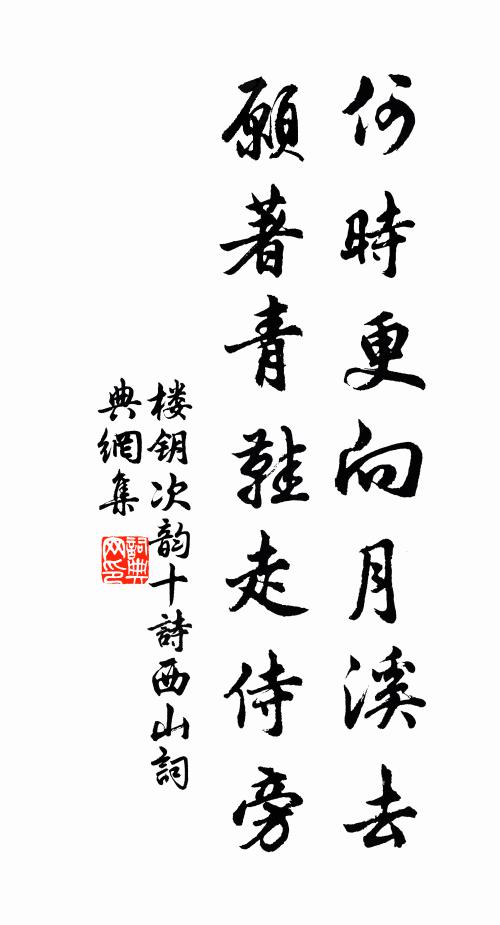 何時更向月溪去
願著青鞋走侍旁
楼钥次韵十詩西山詞
典網集
詞典网印